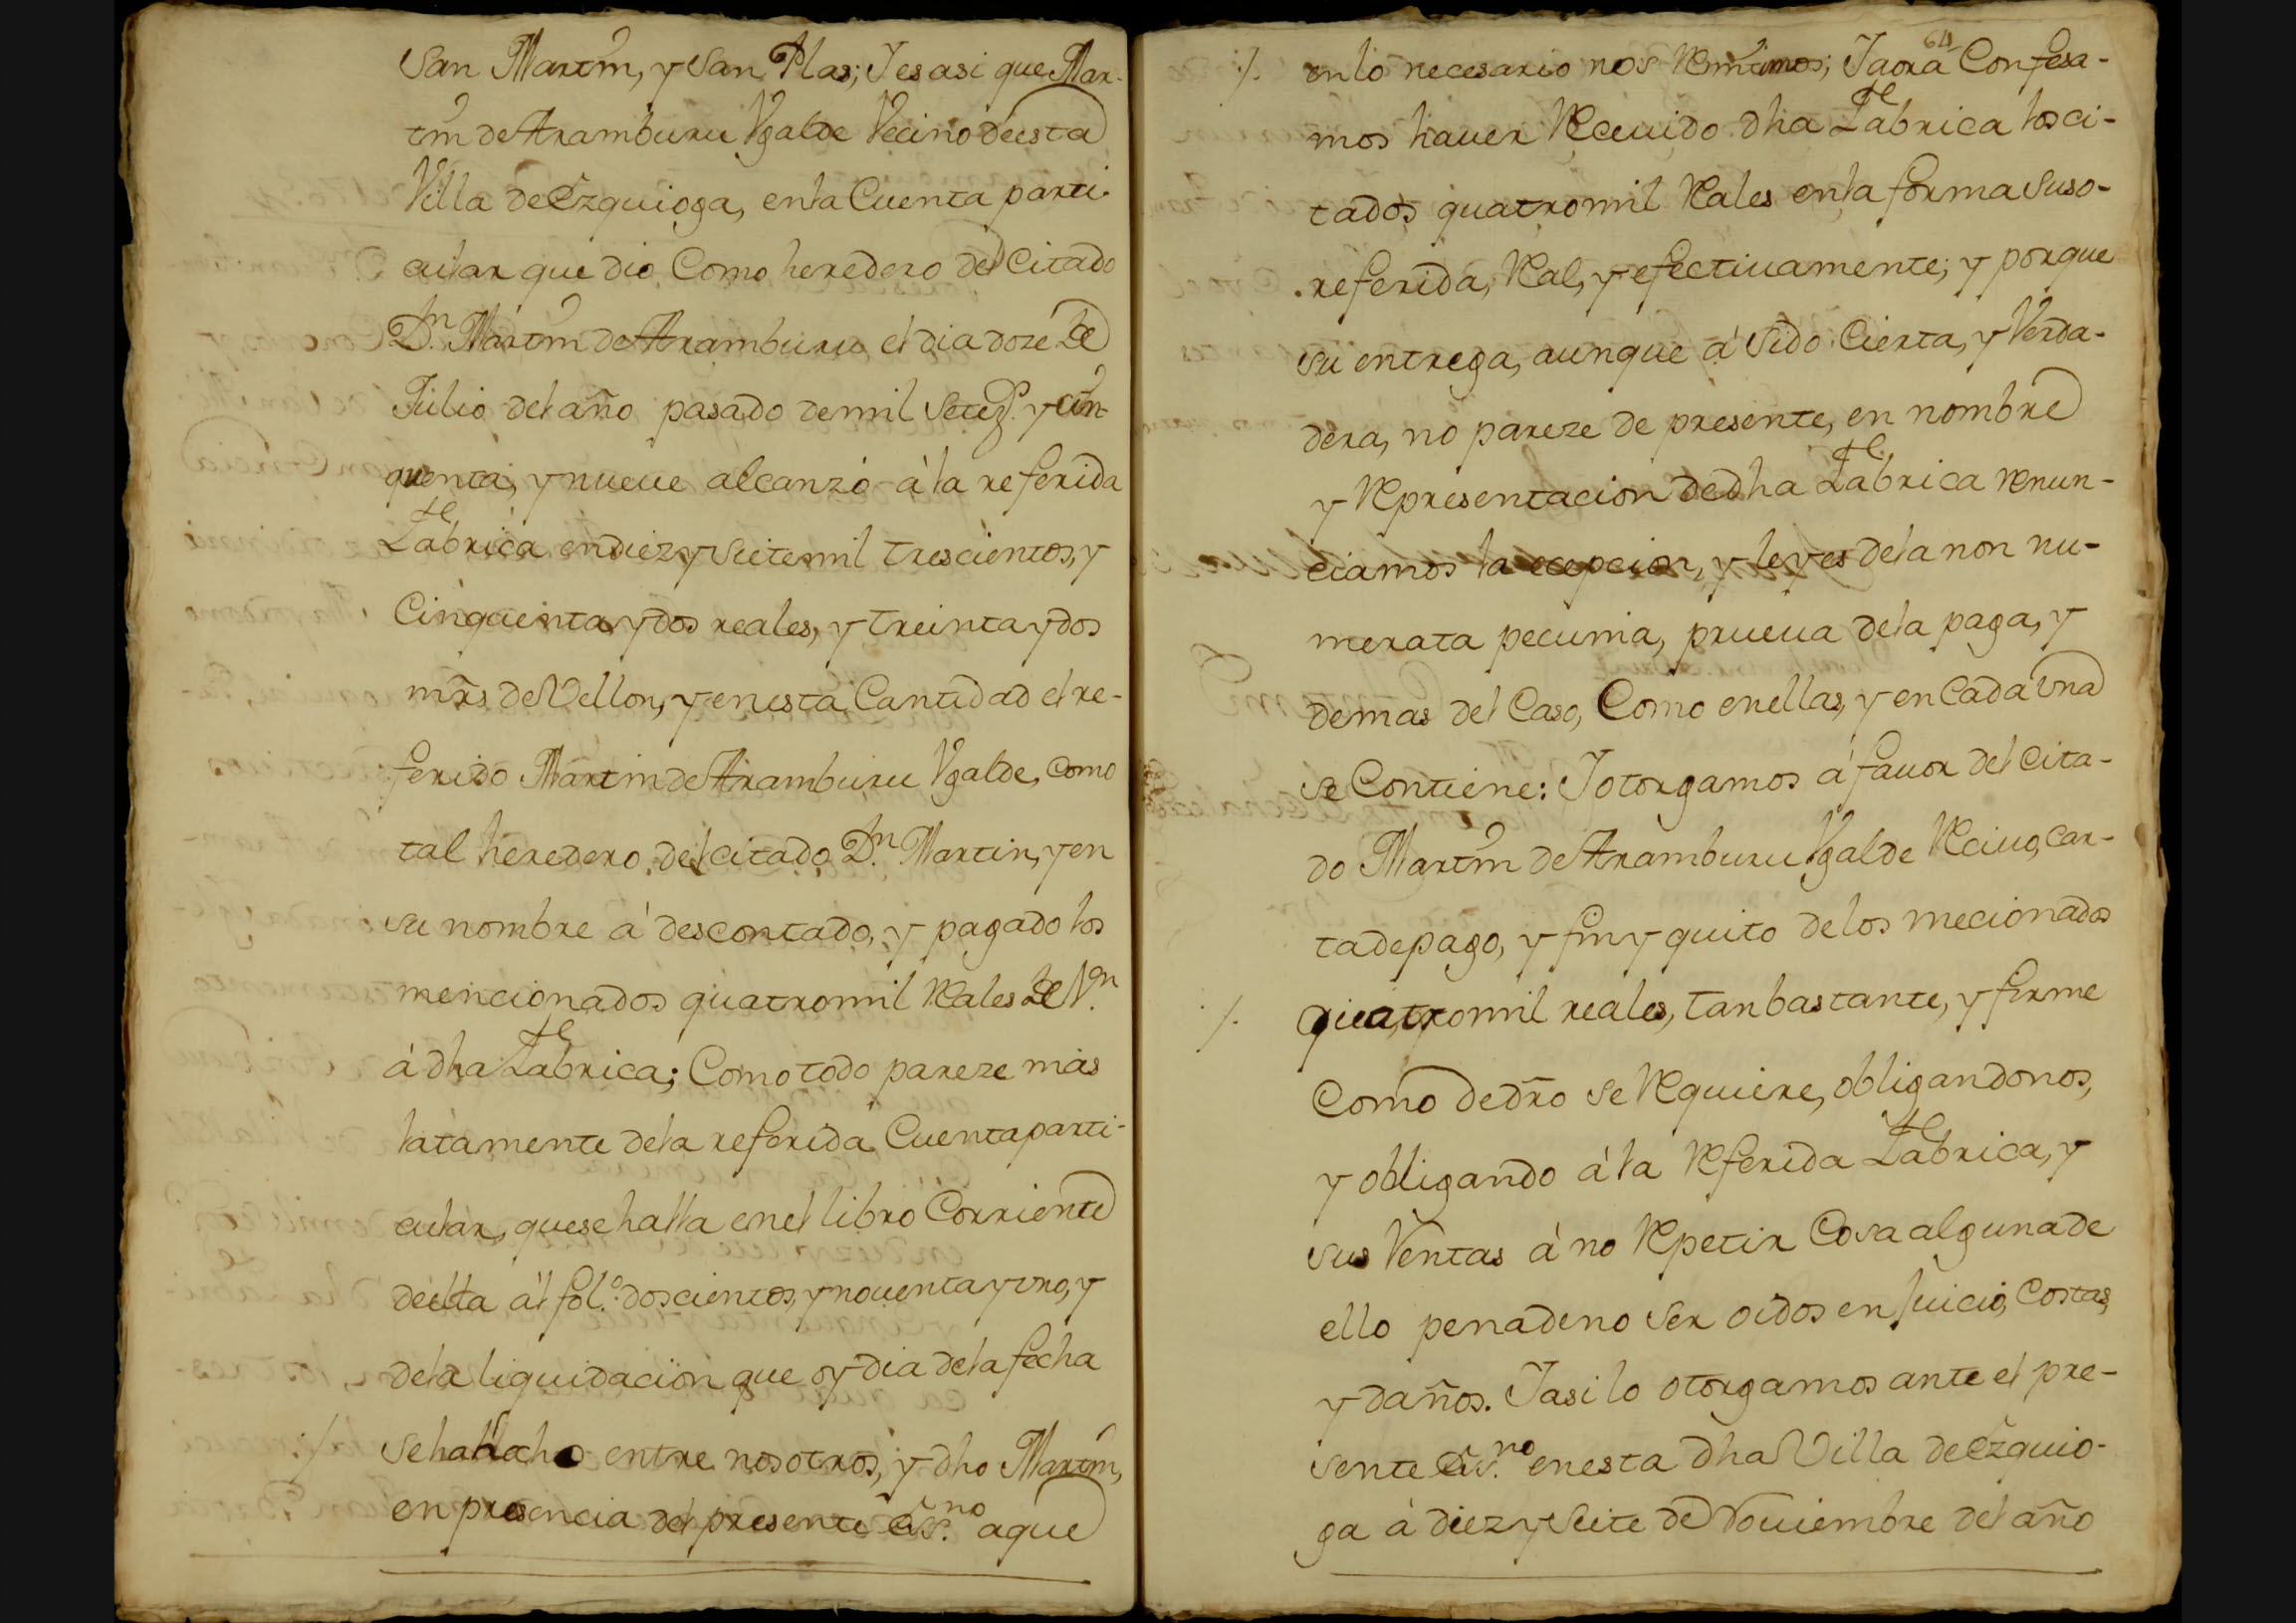 San Martin, y San Blas; Y es asi que Mar-
tin de Aramburu Vgalde Vecino de esta
Villa de Ezquioga, en la Cuenta parti-
cular que dio Como heredero del Citado
Dn. Martin de Aramburu el dia doze de
Julio del año pasado de mil Setezs. y cin-
quenta, y nueue alcanzó à la referida
Fabrica en diez y Siete mil trescientos, y
Cinquenta y dos reales, y treinta y dos
mrs de Vellon, y en esta Cantidad el re-
ferido Martin de Aramburu Vgalde, como
tal heredero del citado Dn. Martin, y en
su nombre á descontado, y pagado los
mencionados quatro mil Reales de Vn.
á dha Fabrica; Como todo pareze mas
latamente de la referida Cuenta parti-
cular, que se halla en el libro Corriente
de ella ál fol.º doscientos, y nouenta y vno, y
de la liquidacion que oy dia de la fecha
:/. Se ha hecho entre nosotros, y dho Martin,
en presencia del presente Ess.no aque
64
:/. en lo necesario nos Remitimos; Y aora Confesa-
mos hauer Receuido dha Fabrica los ci-
tados quatro mil Reales en la forma Suso-
referida, Real, y efectiuamente; y porque
su entrega, aunque á Sido Cierta, y Verda-
dera, no pareze de presente, en nombre
y Representacion de dha Fabrica Renun-
ciamos la ecepcion, y leyes de la non nu-
merata pecunia, prueua de la paga, y
demas del Caso, Como en ellas, y en Cada vna
se Contiene: Y otorgamos á fauor del cita-
do Martin de Aramburu Vgalde Reciuo, car-
ta de pago, y fin y quito de los mecionados
:/. quatro mil reales, tan bastante, y firme
Como de dro se Requiere, obligandonos,
y obligando á la Referida Fabrica, y
sus Rentas á no Repetir Cosa alguna de
ello pena de no Ser oidos en Juicio, Costas,
y daños. Y asi lo otorgamos ante el pre-
sente Ess.no en esta dha Villa de Ezquio-
ga à diez y Siete de Nouiembre del año